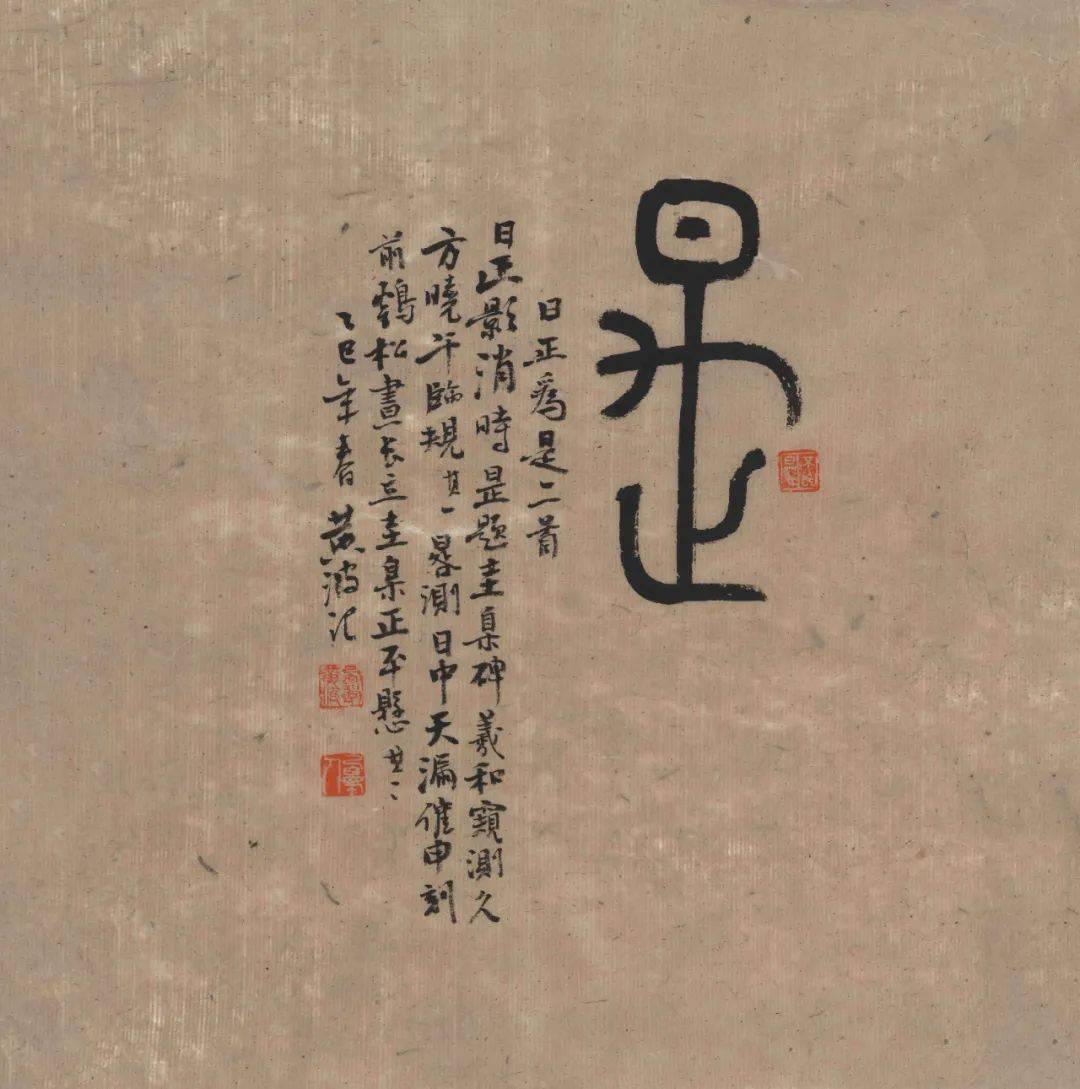 是
日正爲是二首
日正影消時昰題圭臬碑羲和窺測久
方曉午臨規其一晷測日中天漏催申刻
前鶴松晝長立圭臬正平懸其二
乙巳年春黄波記